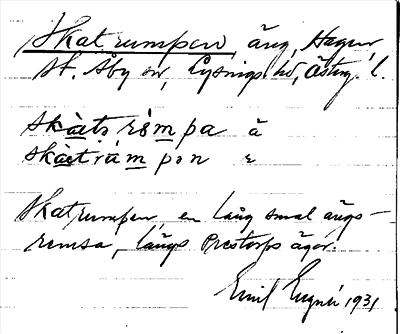 Skatrumpen, äng, Hagen,
St. Åby sn, Lysings hd, Östg. l.
skàtsrèmpa ä
skàtrámpən ε
Skatrumpen, en lång smal ängs-
remsa, längs Prestorps ägor.
Emil Eugné 1931